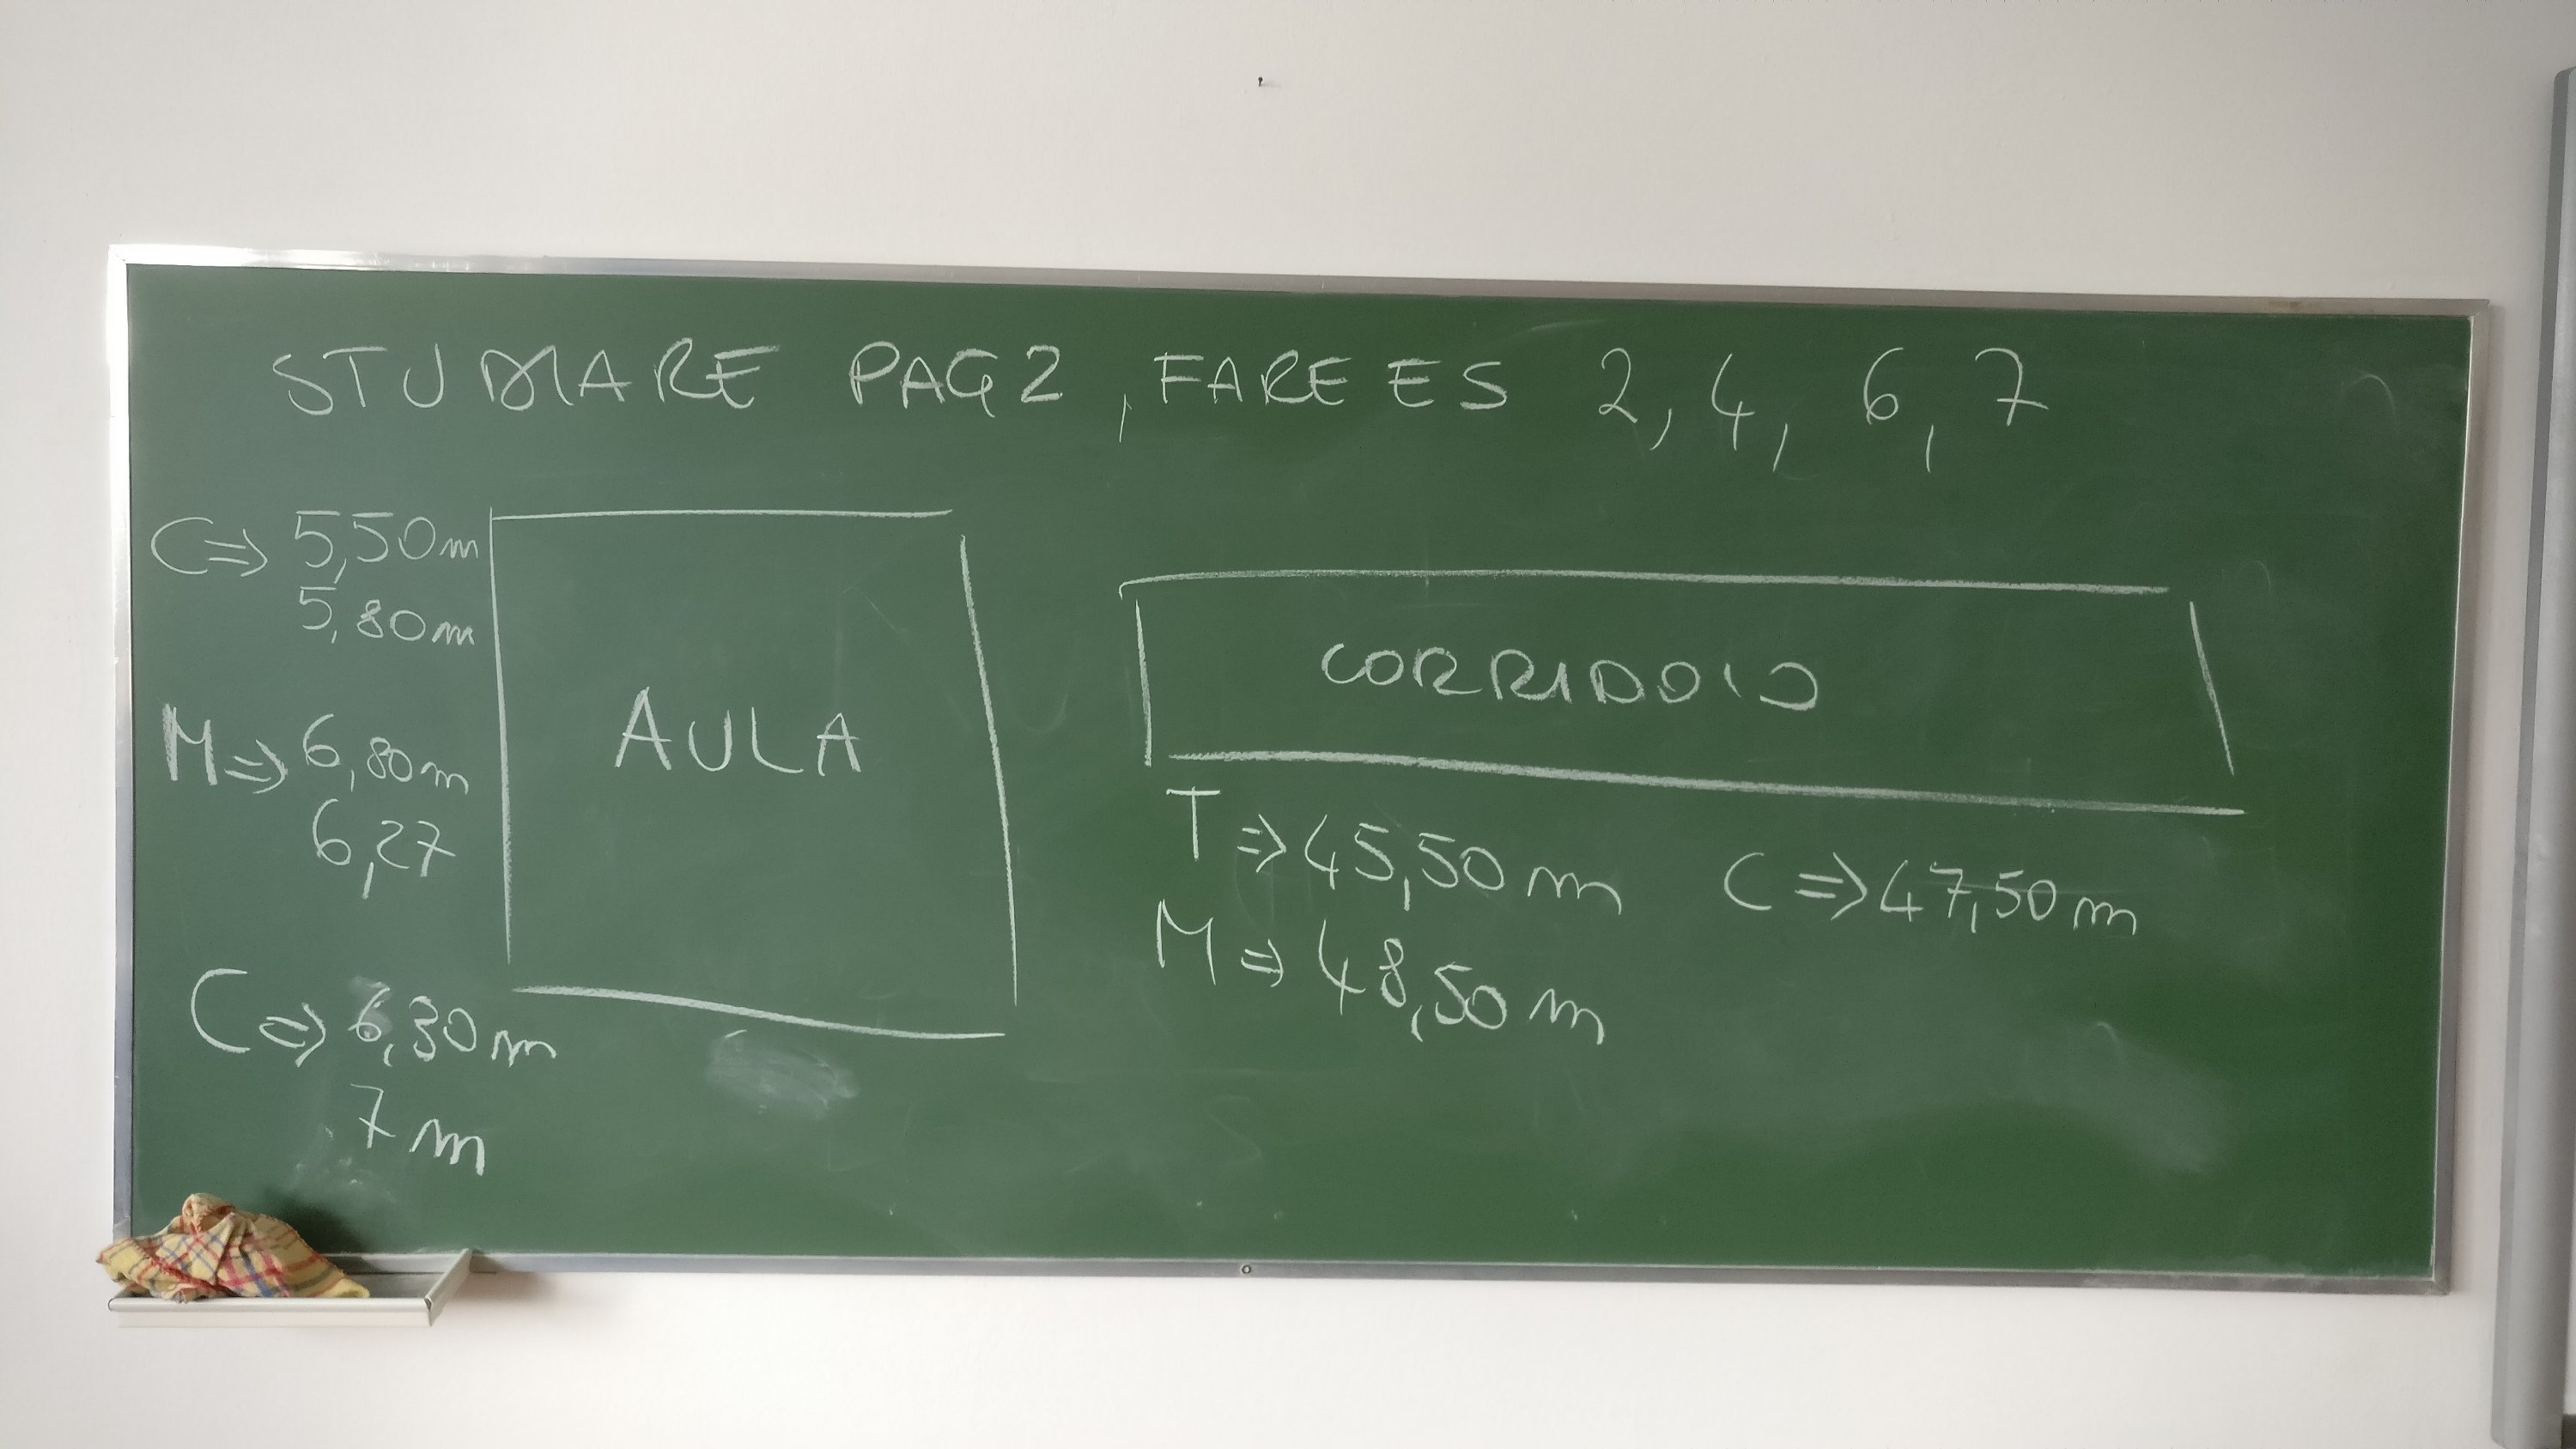 STUDIARE PAG 2, FARE ES 2, 4, 6, 7
C⇒ 5,50m
5,80m
M⇒ 6,80m
6,27
C⇒ 6,30m
7m
AULA
CORRIDOIO
T⇒45,50m C⇒47,50m
M⇒48,50m